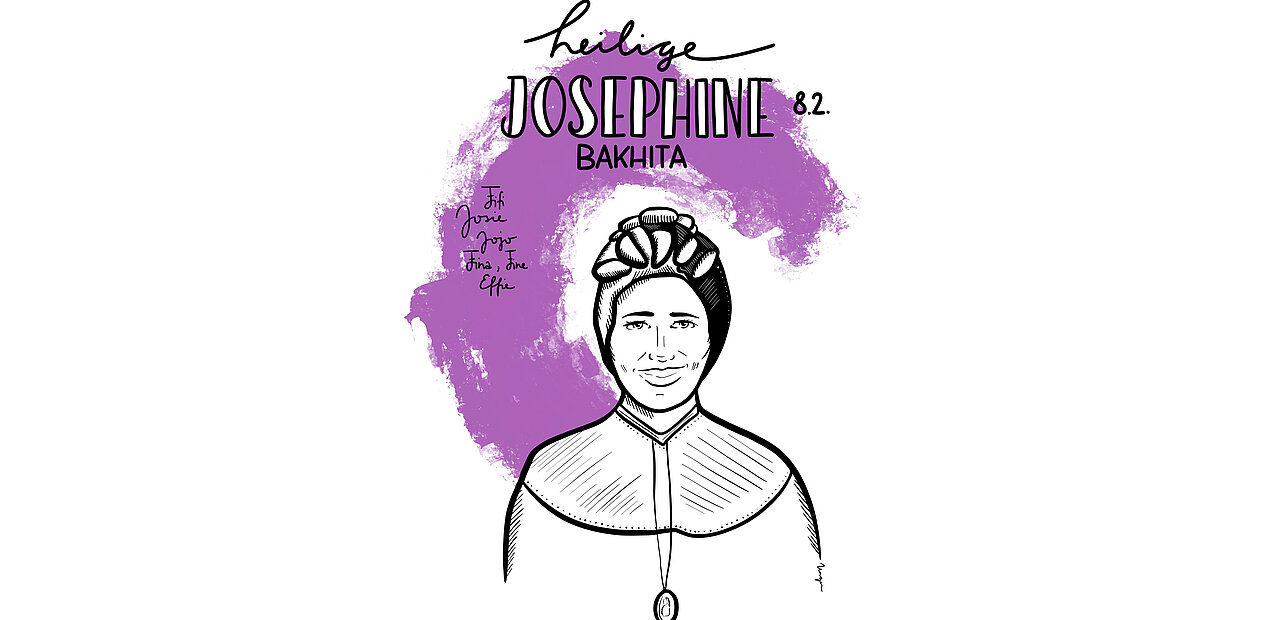 heilige
JOSEPHINE 8.2.
BAKHITA
Fifi
Josie
Jojo
Fina, Fine
Effie